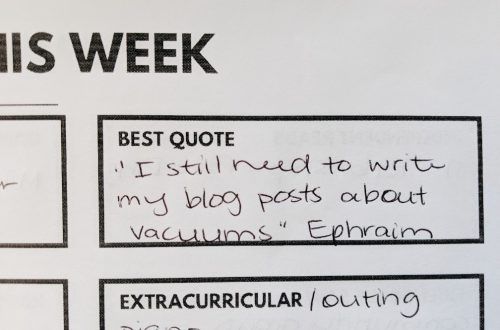 HIS WEEK
BEST QUOTE
"I still need to write
my blog posts about
vacuums" Ephraim
EXTRACURRICULAR /outing